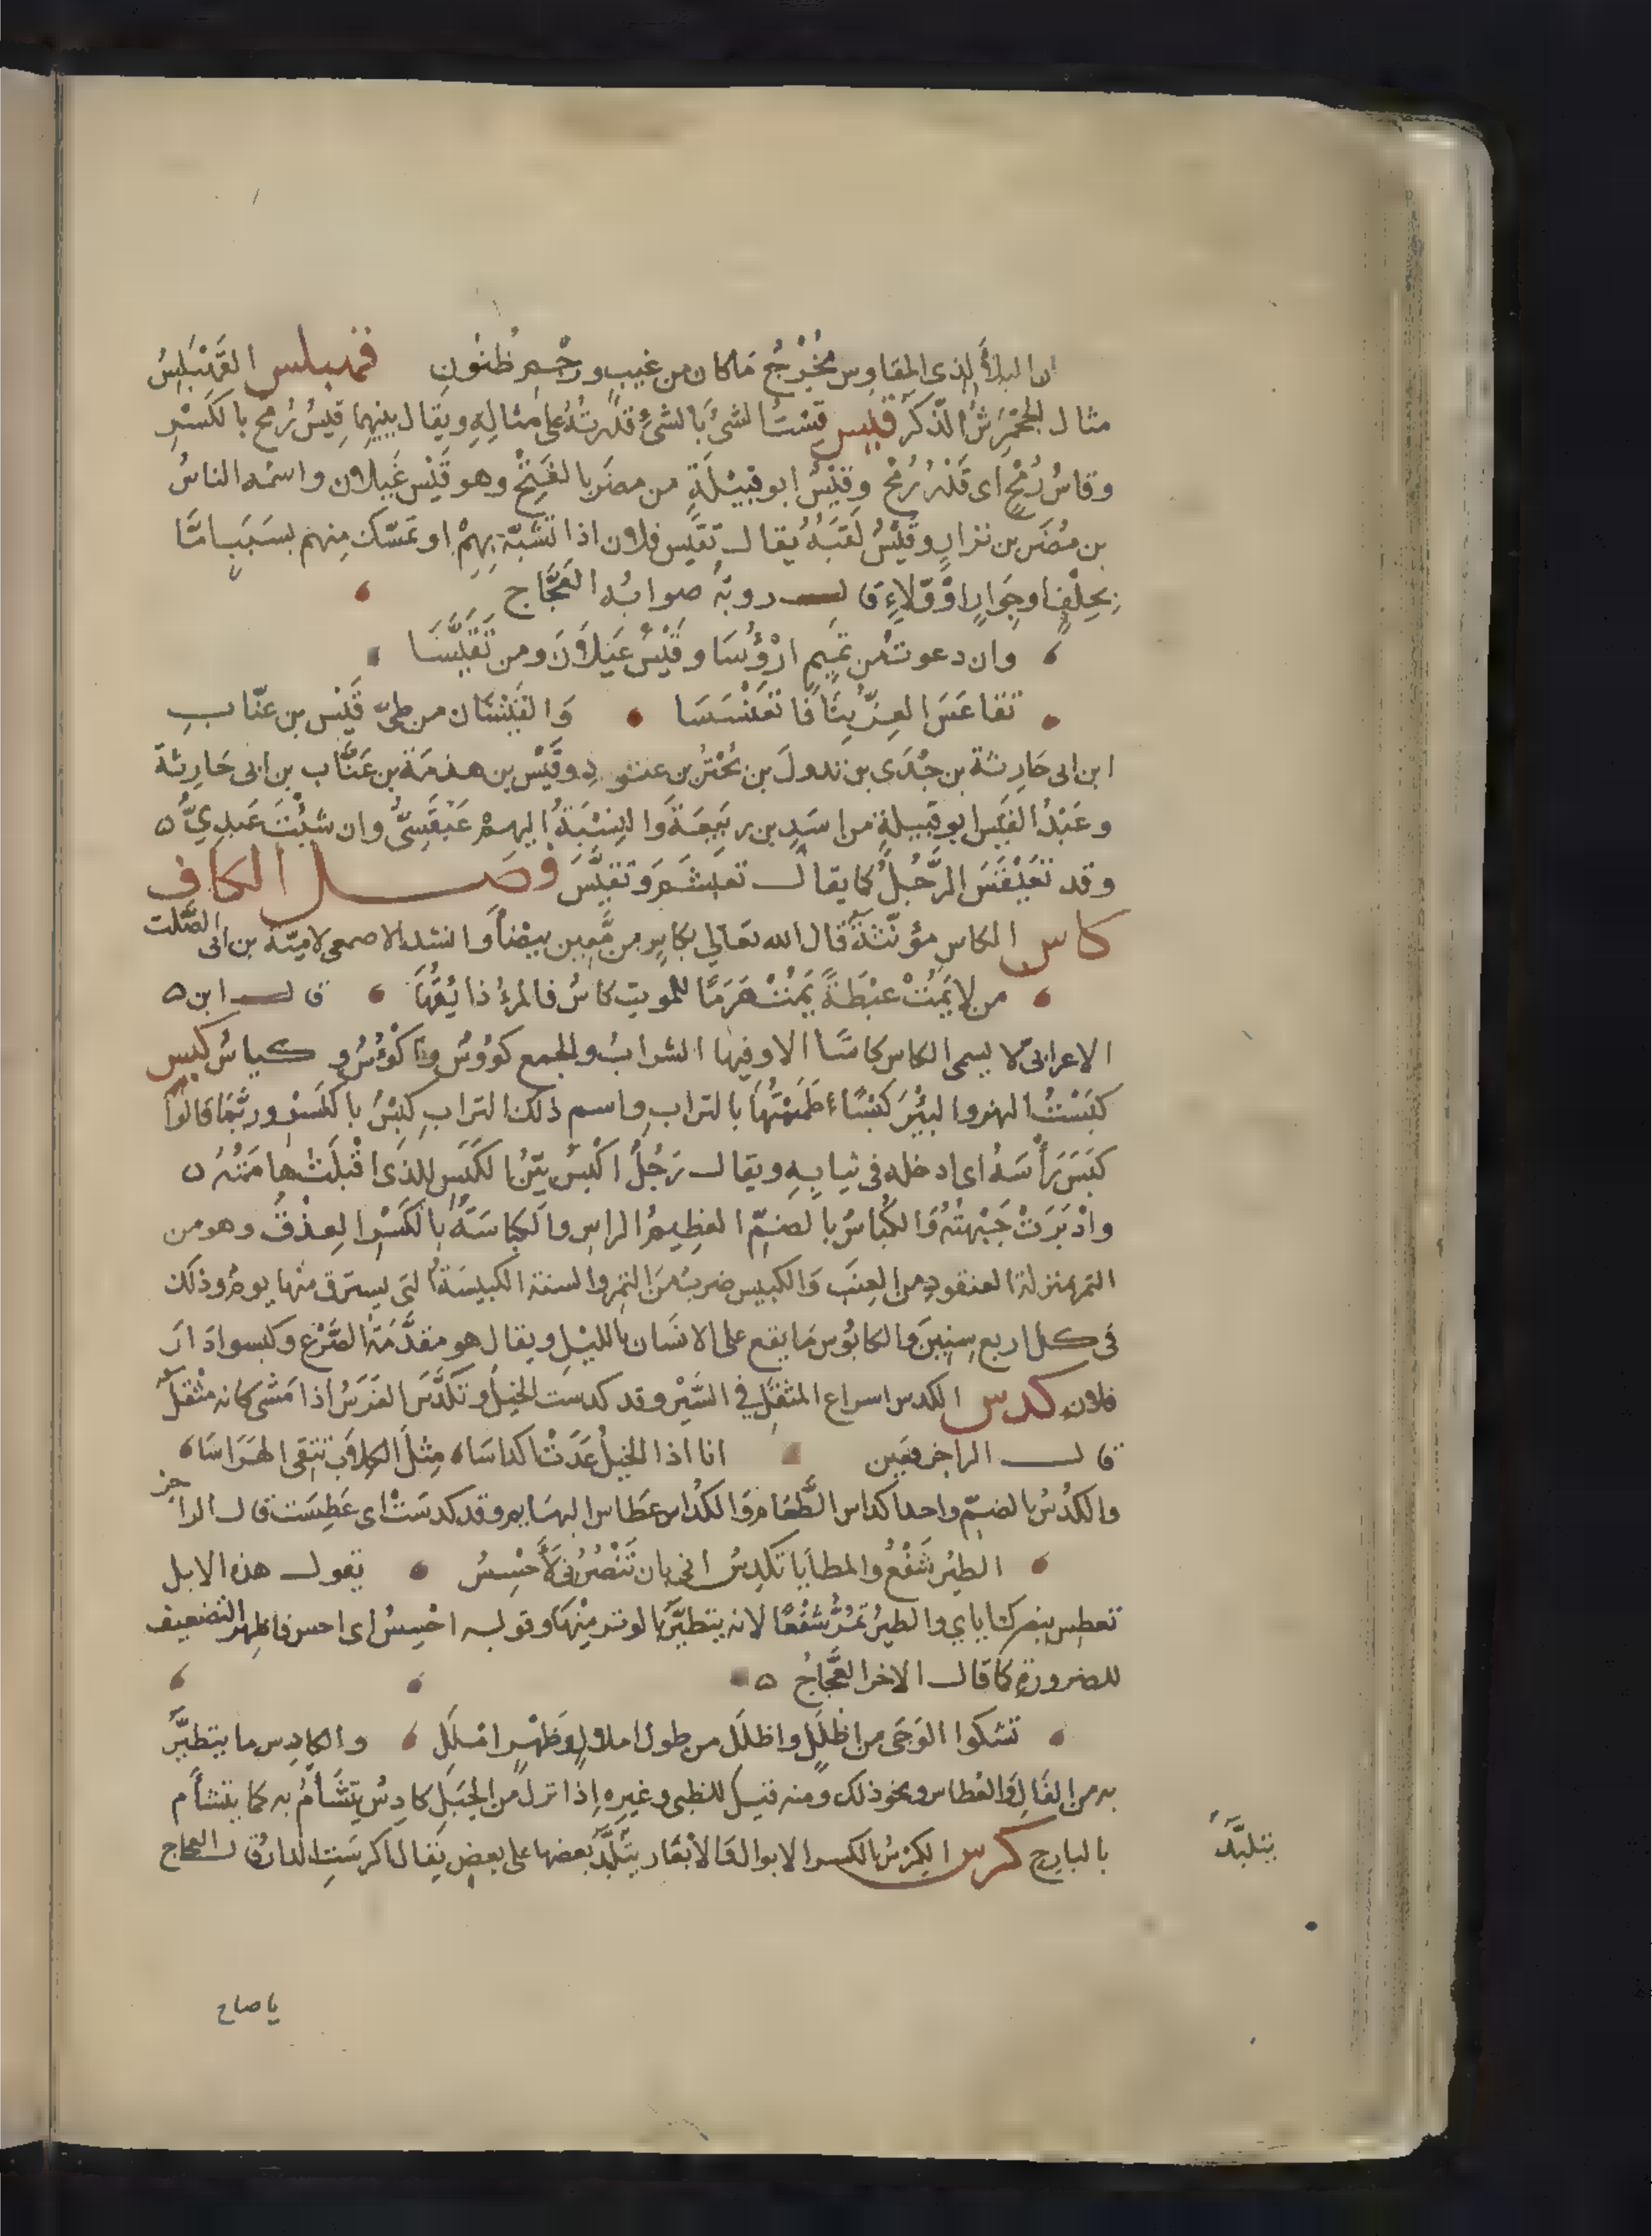 ان البلاَّ الذى المقاوِس يُخْرِجُ مَا كان من غيبٍ ورجْمِ ظُنُونِ قهبلس القَهْبَلِسُ
مثال الجَحْمَرِشُ الذَّكَر قيس قِسْتُ الشىَ بالشىءِ قدرتُهُ على مثالِهِ ويقال بينهما قِيسُ رُمح بالكَسْرِ
وقاسُ رُمْحٍ اى قَدْرُ رُمْحٍ وقَيْسُ ابو قبيْلَةٍ من مضَر بالفَتْحِ وهو قَيْس عَيلان واسمه الناسُ
بن مُضَر بن نزارٍ وقَيْسُ لَقَبُهُ يُقال تقَيّس فلان اذا تشَبَّه بِهِمْ او تمَسّك مِنهم بسَبَبٍ امَّا
بِحِلْفٍ او جِوَارٍ او وَلاءٍ قال روبَةُ صوابُه العَجَّاج
وان دعوت من تَميمٍ ارْؤُسَا وقَيْسُ عَيلَانَ ومن تَقَيَّسَا
تقاعَسَ العِزُّ بِنَا فَاقعَنْسَسَا وَالقَيْسَان من طىّ قَيْس بن عنَّاب
ابن ابى حَارِثة بن جُدَى بن تدولَ بن بُحْتُر بن عتودٍ وقَيْس بن هذمَة بن عَنَّاب بن ابى حَارِثة
وعَبْدُ القَيس ابو قَبيلةٍ من اسَدٍ بن ربيعَة وَالنِسْبَةُ اليهِمْ عَبْقَسِىُّ وان شئْتَ عَبدِىُّ ٥
وقد تعَبْقَسَ الرَّجُلُ كما يقال تعَبْشَمَ وتَقيَّسَ فصل الكاف
كاس الكاس مؤنّثةٌ قال الله تعَالى بكاسٍ من مَّعِين بيضاَ وانشد الاصمعى لاميّة بن ابى الصَّلت
من لا يَمُتْ عبْطَةً يَمُتْ هَرَمًا للموتِ كاسُ فالمرءُ ذائقُهَا قال ابن ٥
الاعرابىّ لا يسمى الكاس كاسًا الا وفيها الشرابُ والجمع كوُوسُ واكْوُسُ وكياسُ كبس
كبَسْتُ النهر والبِيْرَ كَبْسًا طَمَمْتُهَا بالتراب واسم ذلك التراب كِبْسُ بالكَسْرِ وربَّما قالوا
كبَسَ رَأْسَهُ اى ادخله فى ثيابِهِ ويقال رَجُلُ اكْبَسُ بيّنُ الكَبَسِ للذى اقْبلَتْ هامَتُهُ ٥
وادْبَرَتْ جَبْهتُهُ وَالكُبَاسُ بالضمّ العظِيمُ الراس والكِباسَةُ بالكَسْرِ العِذْقُ وهو من
التمر بمنزلة العنقودِ من العِنَبِ وَالكبيس ضربُ من التمر والسنة الكبيسَةُ التى يسترق منها يومُ وذلك
فى كل اربع سِنِينَ والكابُوس مَا يقع على الانسَان بالليْلِ ويقال هو مقدَّمَةُ الصَّرْعِ وكبسوا دَارَ
فلان كدس الكدس اسراع المثقَلِ فى السَّيْرِ وقد كدست الخيلُ وتَكدَّسَ الفَرَسُ اذا مَشَى كانه مُثْقَلُ
قال الراجز معَين انا اذا الخيلُ عَدَتْ اكداسَا مِثلَ الكِلاب تتقى الهَرَاسَا
والكُدْسُ بالضمّ واحد اكداس الطَّعَام وَالكُداس عطَاس البهَايم وقد كدسَتْ اى عَطِسَت قال الراجز
الطيرُ شَفْعُ والمطايَا تكدِسُ انى بان تَنْصُرُنى لَأَحْسِسُ يقول هذه الابل
تعطس بنصرك اياى والطيرُ تمُرُّ شَفْعًا لانه يتطيَّرُ بالوتر مِنْهَا وقوله احْسِسُ اى احس فاظهر التضعيف
للضرورة كما قال الاخر العَجَّاجُ ٥
تشكوا الوَجَى من اظْلَلٍ واظلَل من طول املالٍ وظَهْرٍ امْلَلِ والكادِس ما يتطيَّرُ
به من الفَالِ والعُطاس ونحو ذلك ومنه قيل للظبى وغيره اِذا نزل من الجبَلِ كادِسُ يتَشَأَّمُ به كما يتشأم
بالبارح كرس الكِرْسُ بالكسر الابوال والابْعَار يتَلبَّدُ بعضها على بعض يُقال اكرسَتِ الدار قال العجاج
يتلبّد
يا صاح